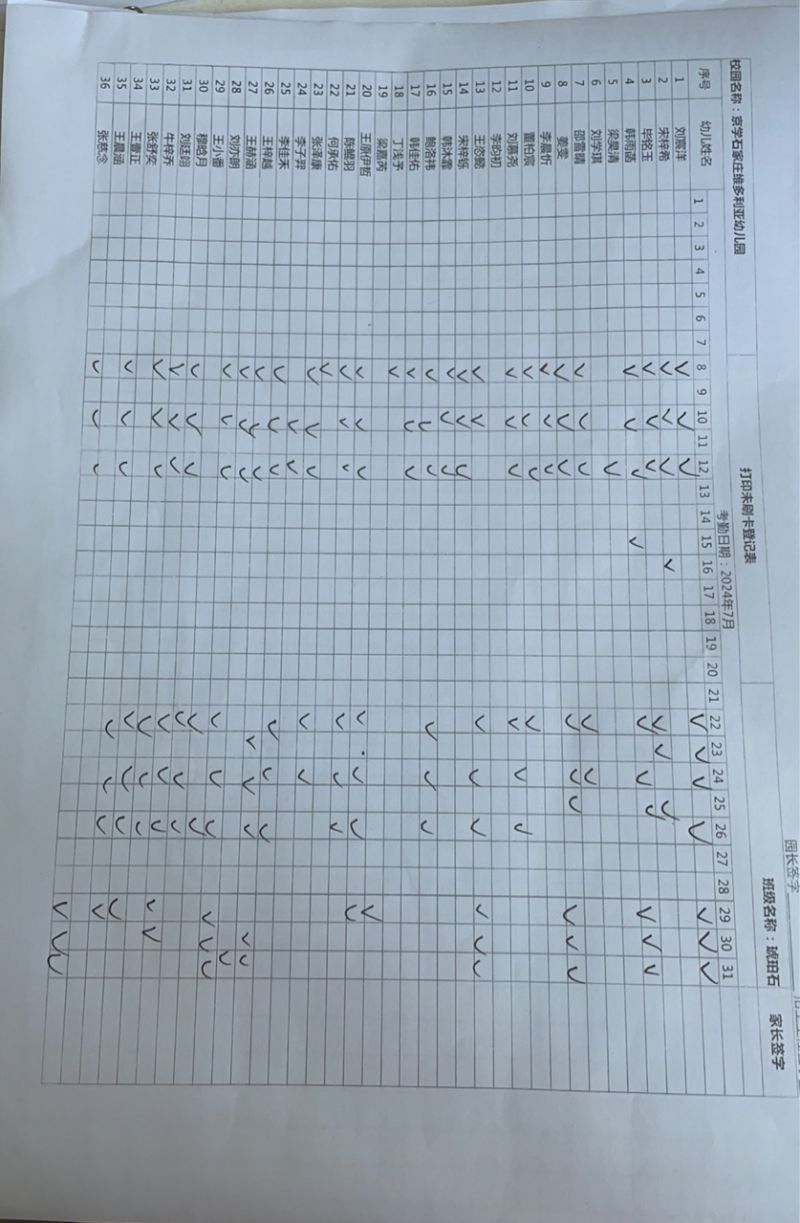 园长签字
打印未刷卡登记表
校园名称：京学石家庄维多利亚幼儿园 考勤日期：2024年7月 班级名称：琥珀石
序号 幼儿姓名 1 2 3 4 5 6 7 8 9 10 11 12 13 14 15 16 17 18 19 20 21 22 23 24 25 26 27 28 29 30 31 家长签字
1 刘宸洋
2 宋梓希
3 毕铭玉
4 韩雨菡
5 梁昊清
6 刘学琪
7 邵雪晴
8 姜雯
9 李晨忻
10 董柏宸
11 刘慕尧
12 李昀初
13 王恣懿
14 宋梓铄
15 韩沐霏
16 鲍洛祎
17 韩佳佑
18 丁浅予
19 梁嘉芮
20 王原伊哲
21 陈鲲羽
22 何承佑
23 张泽康
24 李子羿
25 李佳禾
26 王梓越
27 王赫涵
28 刘亦朗
29 王小番
30 穆晗月
31 刘廷翊
32 牛梓乔
33 张舒奕
34 王壹正
35 王晨涵
36 张慈念